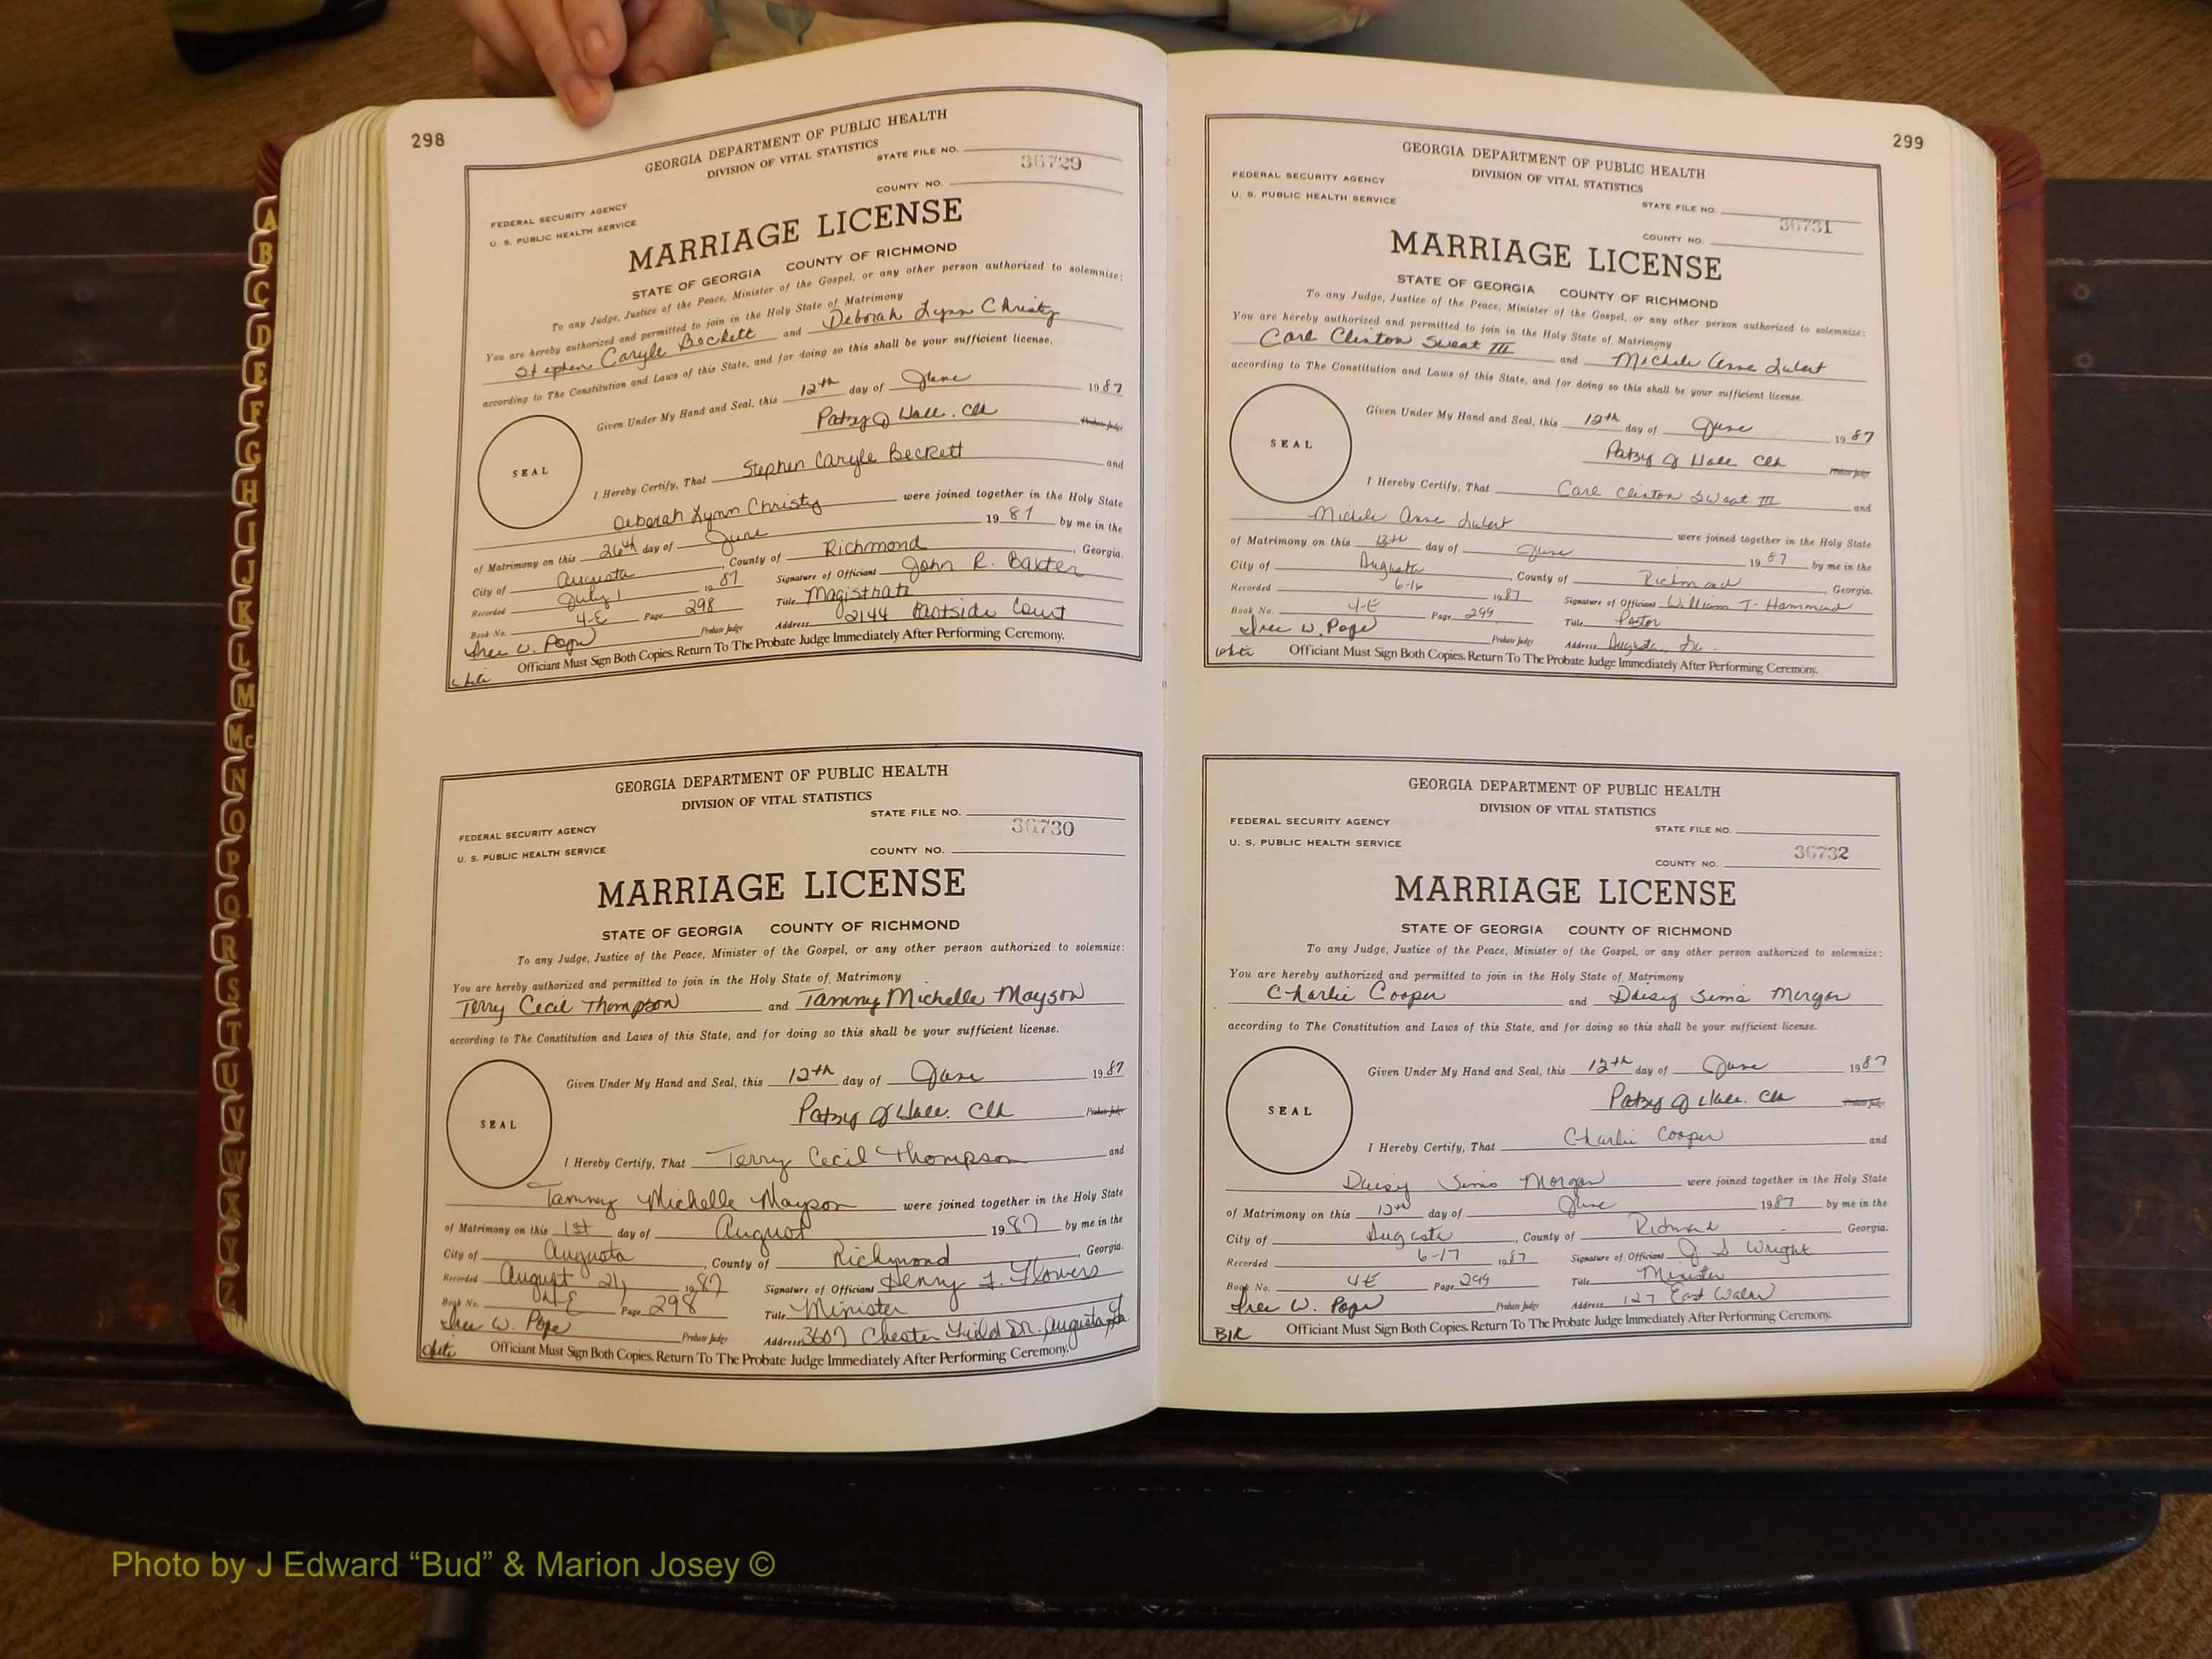 298
GEORGIA DEPARTMENT OF PUBLIC HEALTH
DIVISION OF VITAL STATISTICS
STATE FILE NO.
36729
COUNTY NO.
FEDERAL SECURITY AGENCY
U. S. PUBLIC HEALTH SERVICE
MARRIAGE LICENSE
STATE OF GEORGIA COUNTY OF RICHMOND
To any Judge, Justice of the Peace, Minister of the Gospel, or any other person authorized to solemnize:
You are hereby authorized and permitted to join in the Holy State of Matrimony
Stephen Caryle Beckett and Deborah Lynn Christy
according to The Constitution and Laws of this State, and for doing so this shall be your sufficient license.
Given Under My Hand and Seal, this 12th day of June 1987
Patsy J Hall. Clk Probate Judge
SEAL
I Hereby Certify, That Stephen Caryle Beckett and
Deborah Lynn Christy were joined together in the Holy State
of Matrimony on this 26th day of June 1987 by me in the
City of Augusta, County of Richmond, Georgia.
Recorded July 1 1987 Signature of Officiant John R. Baxter
Book No. 4-E Page 298 Title Magistrate
W. Pope Probate Judge Address 2144 Eastside Court
Officiant Must Sign Both Copies. Return To The Probate Judge Immediately After Performing Ceremony.
GEORGIA DEPARTMENT OF PUBLIC HEALTH
DIVISION OF VITAL STATISTICS
STATE FILE NO.
36730
FEDERAL SECURITY AGENCY
U. S. PUBLIC HEALTH SERVICE
COUNTY NO.
MARRIAGE LICENSE
STATE OF GEORGIA COUNTY OF RICHMOND
To any Judge, Justice of the Peace, Minister of the Gospel, or any other person authorized to solemnize:
You are hereby authorized and permitted to join in the Holy State of Matrimony
Terry Cecil Thompson and Tammy Michelle Mayson
according to The Constitution and Laws of this State, and for doing so this shall be your sufficient license.
Given Under My Hand and Seal, this 12th day of June 1987
Patsy J Hall. Clk Probate Judge
SEAL
I Hereby Certify, That Terry Cecil Thompson and
Tammy Michelle Mayson were joined together in the Holy State
of Matrimony on this 1st day of August 1987 by me in the
City of Augusta, County of Richmond, Georgia.
Recorded August 21, 1987 Signature of Officiant Henry F. Flowers
Book No. 4-E Page 298 Title Minister
W. Pope Probate Judge Address 3607 Chester Field Dr. Augusta, Ga.
White Officiant Must Sign Both Copies. Return To The Probate Judge Immediately After Performing Ceremony.
299
GEORGIA DEPARTMENT OF PUBLIC HEALTH
DIVISION OF VITAL STATISTICS
FEDERAL SECURITY AGENCY
U. S. PUBLIC HEALTH SERVICE
STATE FILE NO.
36731
COUNTY NO.
MARRIAGE LICENSE
STATE OF GEORGIA COUNTY OF RICHMOND
To any Judge, Justice of the Peace, Minister of the Gospel, or any other person authorized to solemnize:
You are hereby authorized and permitted to join in the Holy State of Matrimony
Carl Clinton Sweat III and Michele Anne
according to The Constitution and Laws of this State, and for doing so this shall be your sufficient license.
Given Under My Hand and Seal, this 12th day of June 1987
Patsy J Hall Clk Probate Judge
SEAL
I Hereby Certify, That Carl Clinton Sweat III and
Michele Anne were joined together in the Holy State
of Matrimony on this 13th day of June 1987 by me in the
City of Augusta, County of Richmond, Georgia.
Recorded 6-16 1987 Signature of Officiant William T. Hammond
Book No. 4-E Page 299 Title Pastor
W. Pope Probate Judge Address Augusta, Ga.
White Officiant Must Sign Both Copies. Return To The Probate Judge Immediately After Performing Ceremony.
GEORGIA DEPARTMENT OF PUBLIC HEALTH
DIVISION OF VITAL STATISTICS
FEDERAL SECURITY AGENCY
STATE FILE NO.
U. S. PUBLIC HEALTH SERVICE
36732
COUNTY NO.
MARRIAGE LICENSE
STATE OF GEORGIA COUNTY OF RICHMOND
To any Judge, Justice of the Peace, Minister of the Gospel, or any other person authorized to solemnize:
You are hereby authorized and permitted to join in the Holy State of Matrimony
Charlie Cooper and Daisy Sims Morgan
according to The Constitution and Laws of this State, and for doing so this shall be your sufficient license.
Given Under My Hand and Seal, this 12th day of June 1987
Patsy J Hall. Clk Probate Judge
SEAL
I Hereby Certify, That Charlie Cooper and
Daisy Sims Morgan were joined together in the Holy State
of Matrimony on this 12th day of June 1987 by me in the
City of Augusta, County of Richmond, Georgia.
Recorded 6-17 1987 Signature of Officiant J. S Wright
Book No. 4E Page 299 Title Minister
W. Pope Probate Judge Address 127 East
Blk Officiant Must Sign Both Copies. Return To The Probate Judge Immediately After Performing Ceremony.
A
B
C
D
E
F
G
H
I
J
K
L
M
Mc
N
O
P
Q
R
S
T
U
V
W
X
Y
Z
Photo by J Edward “Bud” & Marion Josey ©